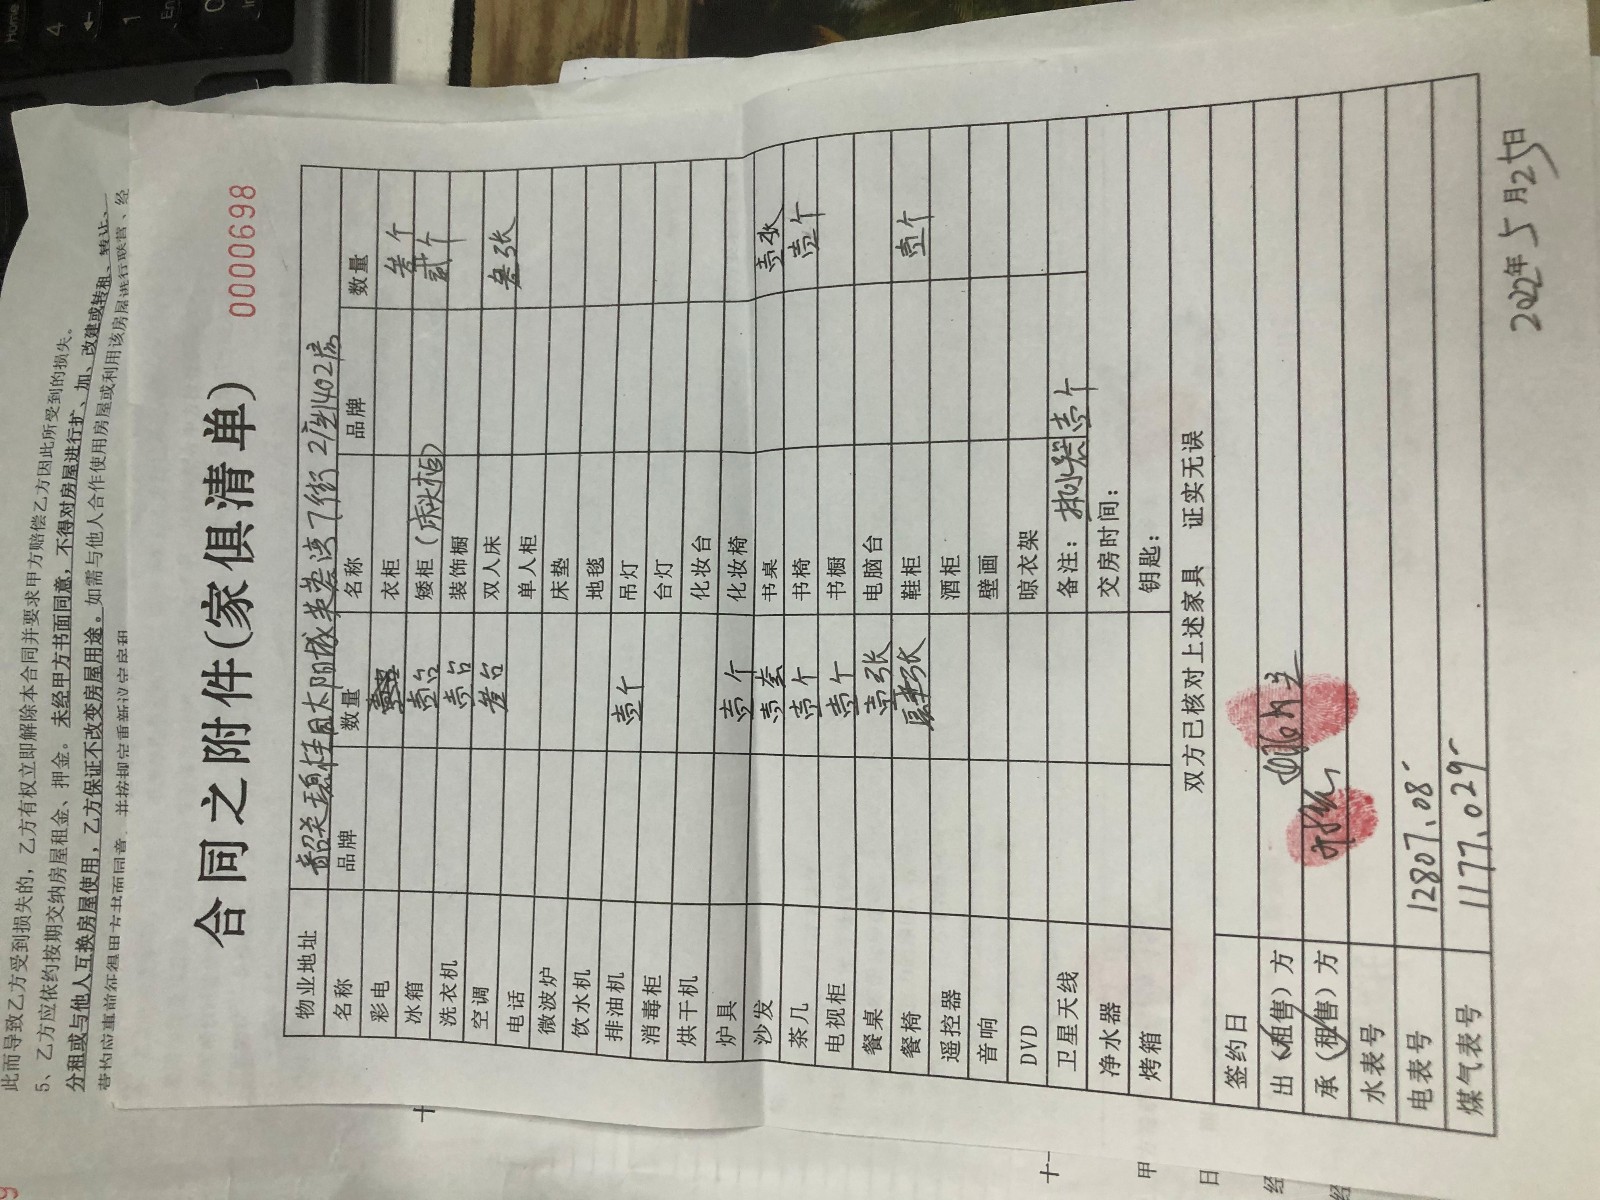 此而导致乙方受到损失的，乙方有权立即解除本合同并要求甲方赔偿乙方因此所受到的损失。
5、乙方应依约按期交纳房屋租金、押金。未经甲方书面同意，不得对房屋进行扩、加、改建或转租、转让、
分租或与他人互换房屋使用，乙方保证不改变房屋用途。如需与他人合作使用房屋或利用该房屋进行联营、经
营均应事前征得甲方书面同意，并按规定重新议定房租
合同之附件(家俱清单) 0000698
物业地址 韶关碧桂园太阳城芙蓉湾7街2座1402房
名称 品牌 数量 名称 品牌 数量
彩电 衣柜 叁个
冰箱 壹台 矮柜(床头柜) 贰个
洗衣机 壹台 装饰橱
空调 叁台 双人床 叁张
电话 单人柜
微波炉 床垫
饮水机 地毯
排油机 壹个 吊灯
消毒柜 台灯
烘干机 化妆台
炉具 壹个 化妆椅
沙发 壹套 书桌 壹张
茶几 壹个 书椅 壹个
电视柜 壹个 书橱
餐桌 壹张 电脑台
餐椅 张 鞋柜 壹个
遥控器 酒柜
音响 壁画
DVD 晾衣架
卫星天线 备注：热水器壹个
净水器 交房时间：
烤箱 钥匙：
双方已核对上述家具 证实无误
签约日
出（租售）方
承（租售）方
水表号
电表号 12807.08
煤气表号 1177.029
2022年5月25日